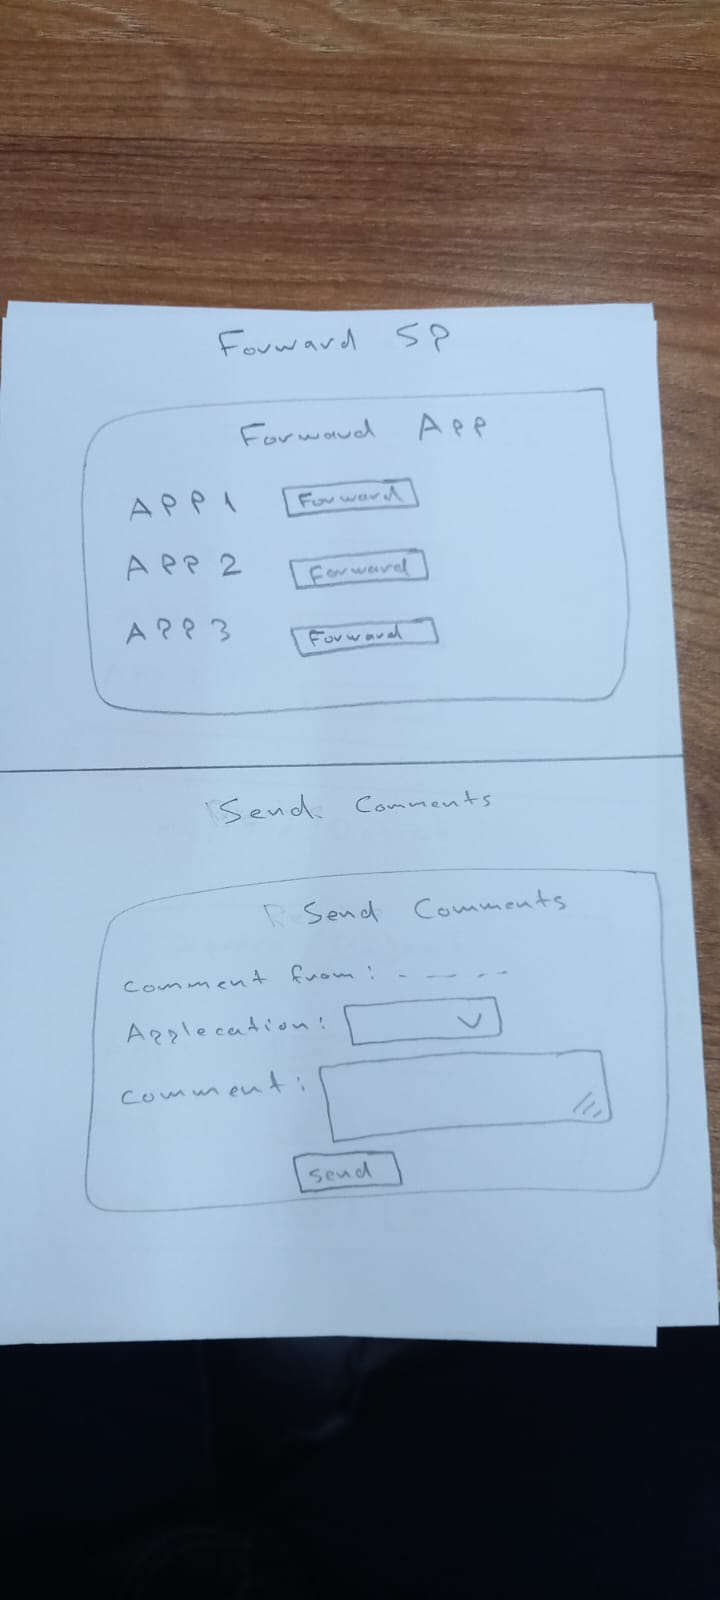 Forward SP
Forward App
APP 1 Forward
APP 2 Forward
APP 3 Forward
Send Comments
Send Comments
Comment from: - - - -
Applecation:
Comment:
Send